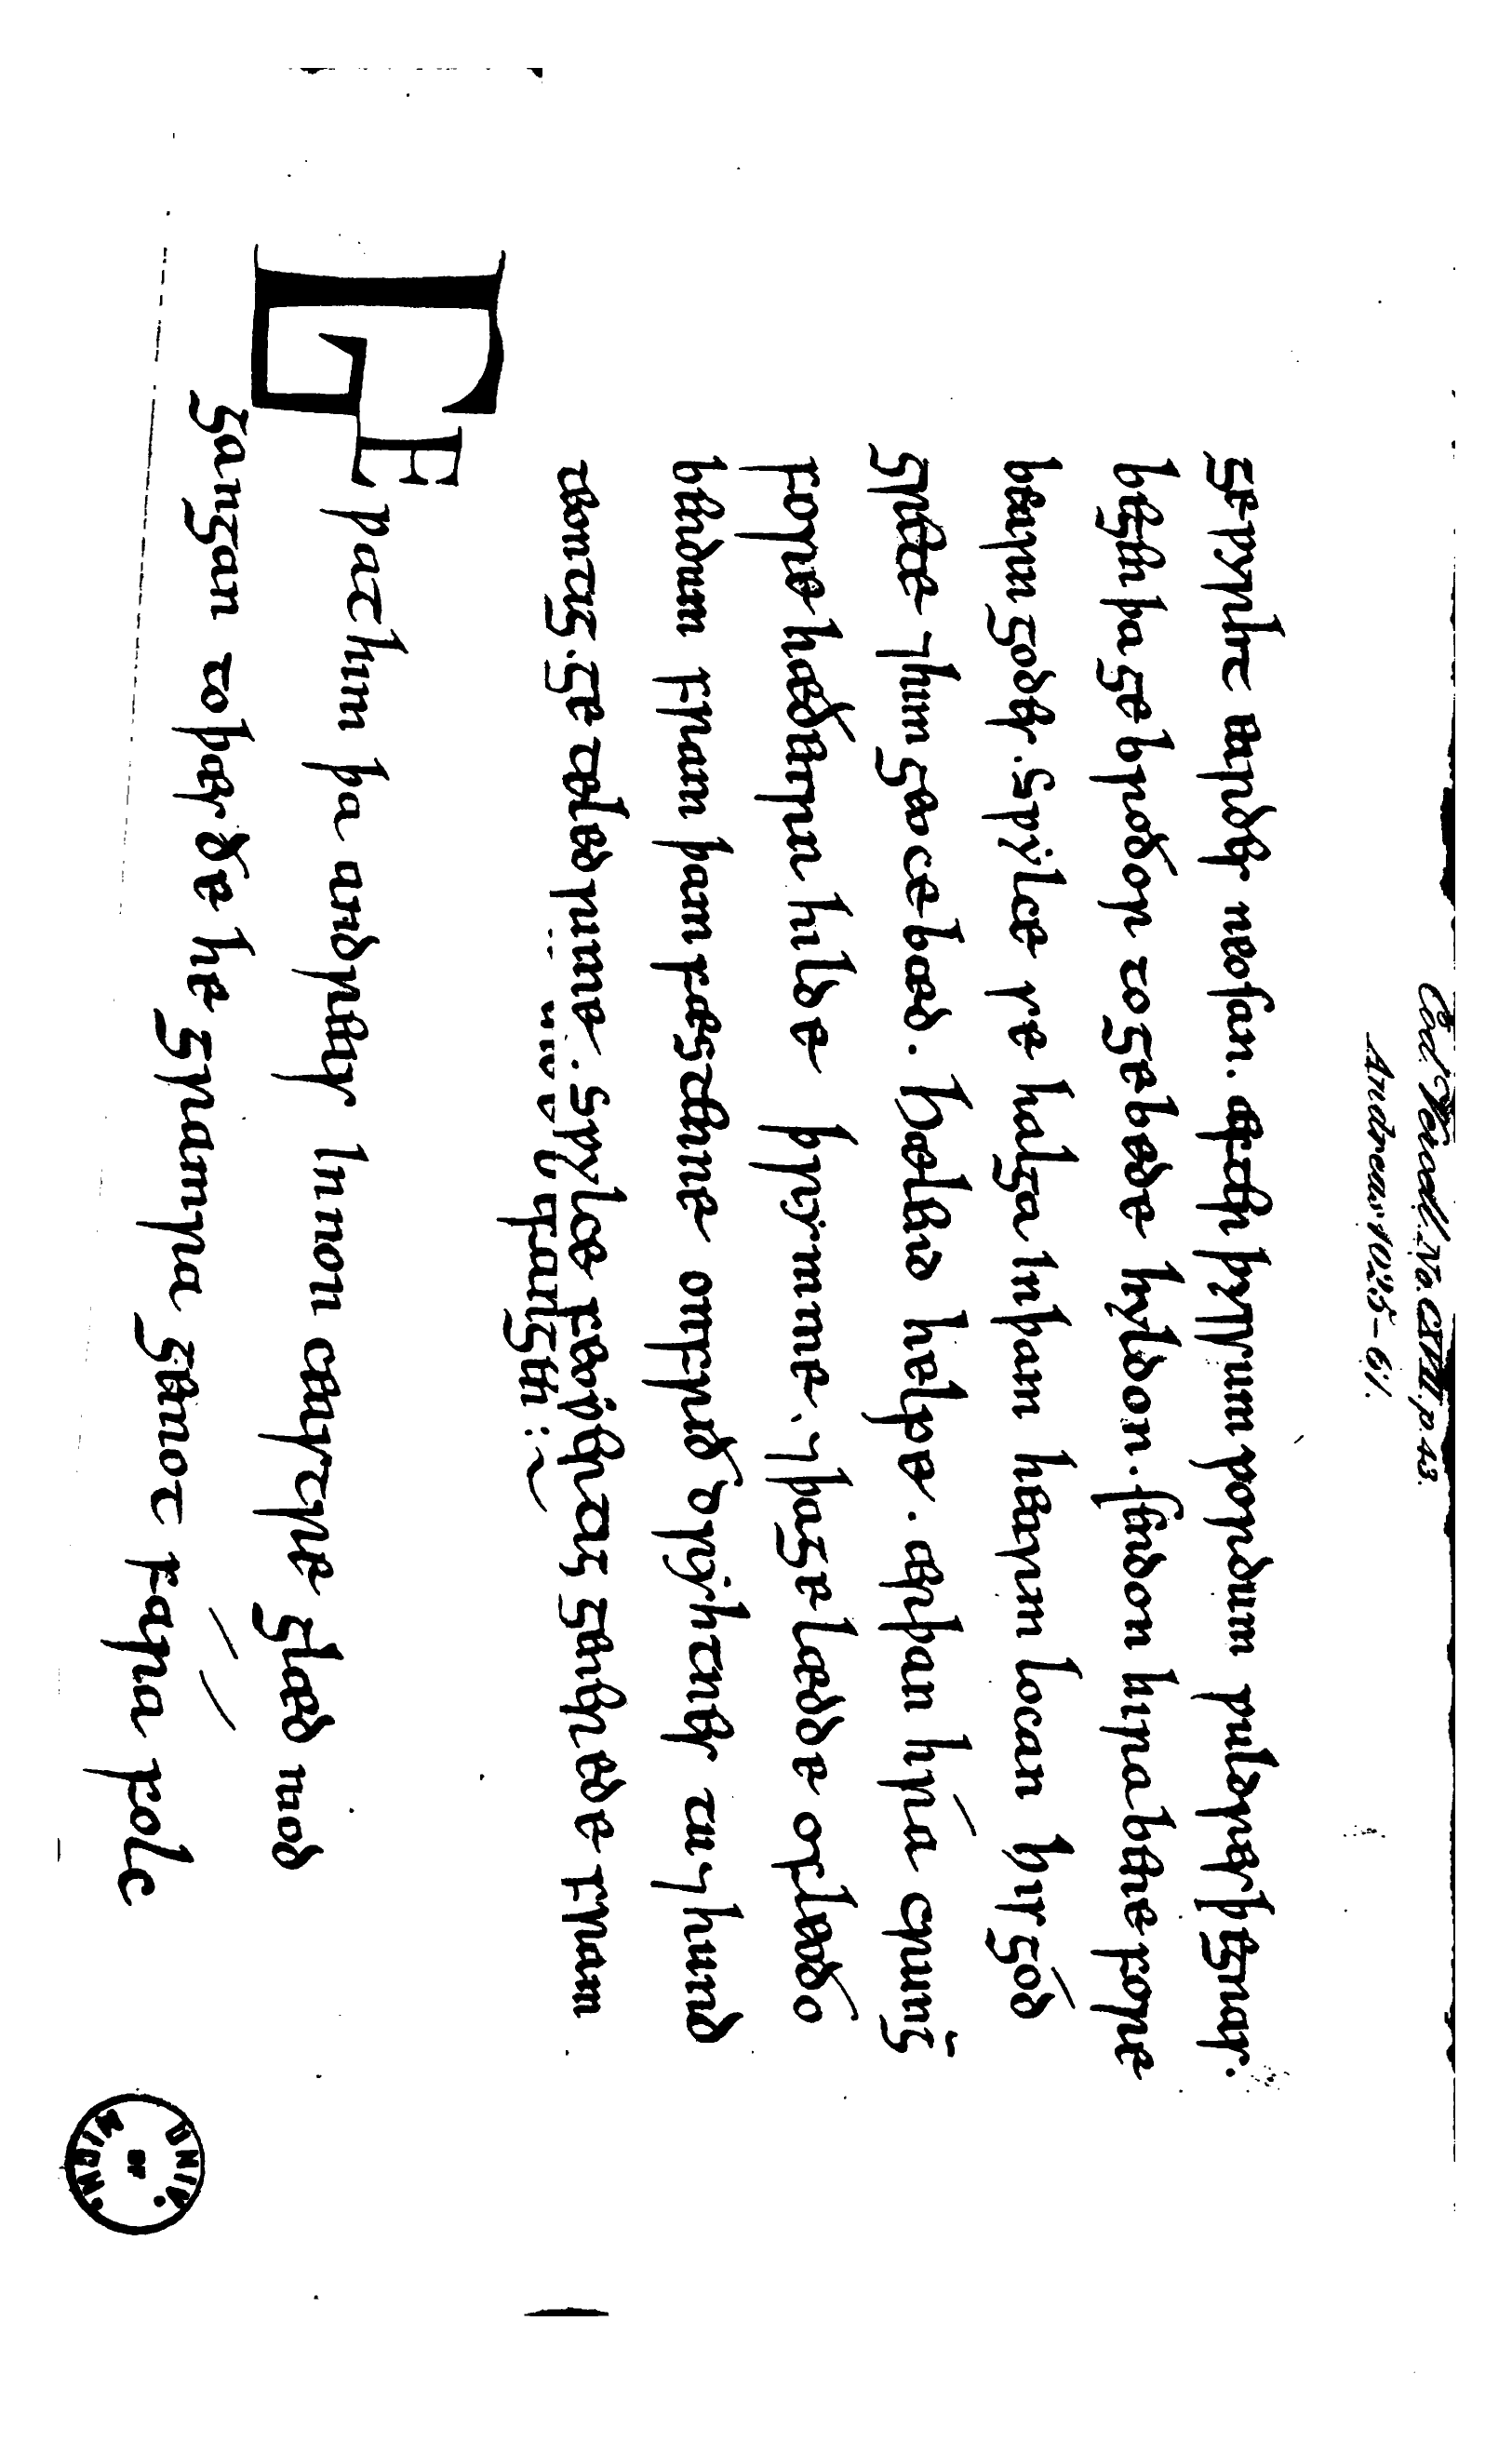 Cod. Vercell. No. CXVII. p. 43.
Andreas 1025–61.
geƿyrht eardes neosan. æfter þyssum ƿordum ƿuldres þegnas.
begen þa gebroðor to gebede hyldon. sendon hira bene fore
bearn godes. Sƿylce se halga in þam hearm locan his gód
grette ⁊ him geoce bæd. hælend helpe. ær þan hrá crung̅
fore hæðenra hilde þrymme. ⁊ þa gelædde of leoðo
bendum fram þam fæstenne on frið dryhtnes tu ⁊ hund
teontig. ge teled rime. Sƿylce feoƿertig generede fram
GE ƿat him þa andreas inn on ceastre glæd mod
gangan to þæs ðe he gramra gemot fára folc
UNIV. OF MICH.